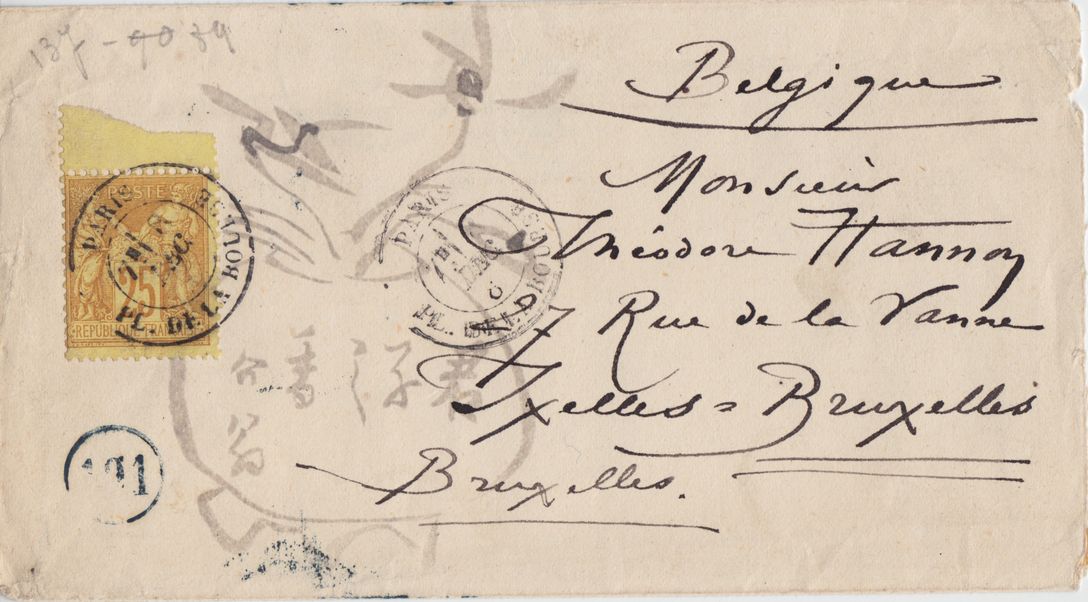 137 - 90 39
Belgique
Monsieur
Théodore Hannon
7 Rue de la Vanne
Ixelles = Bruxelles
Bruxelles.
POSTE
25
REPUBLIQUE FRANC
PARIS
PL. DE LA BOURSE
PARIS
DEC
PL. DE LA BOURSE
191